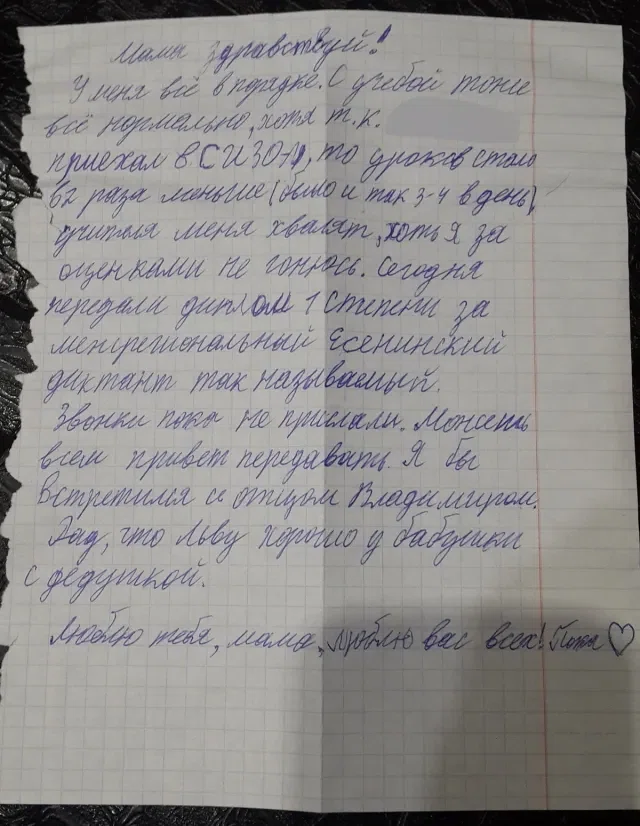 Мама здравствуй!
У меня всё в порядке. С учебой тоже
всё нормально, хотя т.к.
приехал в СИЗО-1, то уроков стало
в 2 раза меньше (было и так 3-4 в день),
учителя меня хвалят, хоть я за
оценками не гонюсь. Сегодня
передали диплом 1 степени за
межрегиональный Есенинский
диктант так называемый.
Звонки пока не прислали. Можешь
всем привет передавать. Я бы
встретился с отцом Владимиром.
Рад, что Льву хорошо у бабушки
с дедушкой.
Люблю тебя, мама, люблю вас всех! Пока ♡